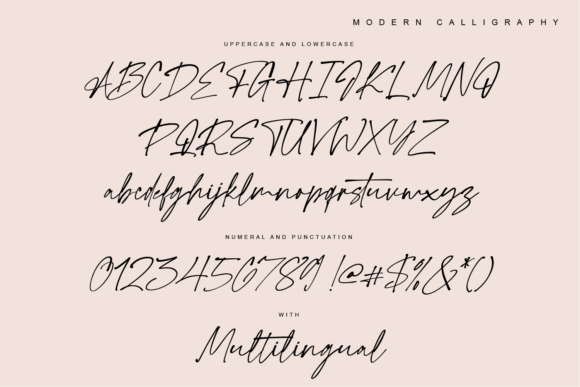 MODERN CALLIGRAPHY
UPPERCASE AND LOWERCASE
ABCDEFGHIJKLMNO
PQRSTUVWXYZ
abcdefghijklmnopqrstuvwxyz
NUMERAL AND PUNCTUATION
0123456789!@#$%&*()
WITH
Multilingual